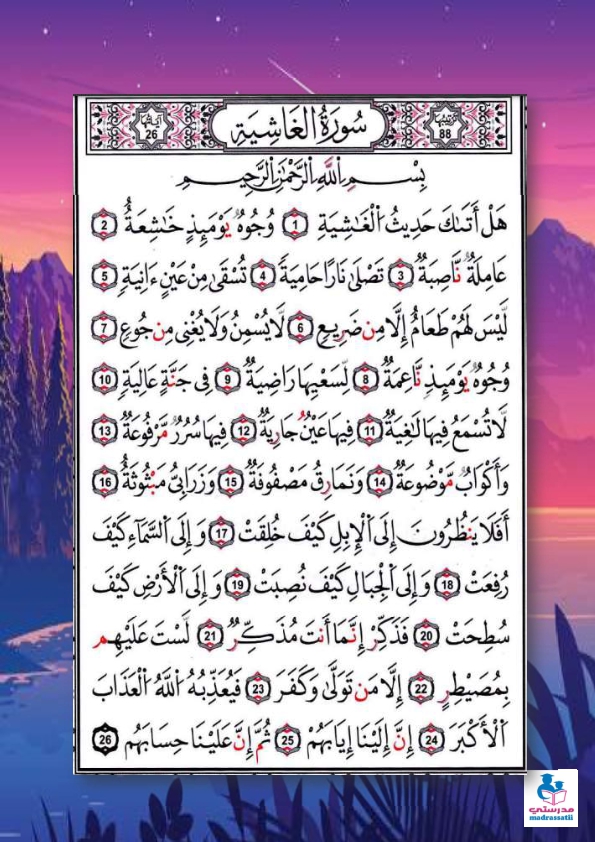 ترتيبها 88 سُورَةُ الْغَاشِيَةِ آياتها 26
بِسْمِ اللَّهِ الرَّحْمَٰنِ الرَّحِيمِ
هَلْ أَتَىٰكَ حَدِيثُ الْغَٰشِيَةِ 1 وُجُوهٌ يَوْمَئِذٍ خَٰشِعَةٌ 2
عَامِلَةٌ نَّاصِبَةٌ 3 تَصْلَىٰ نَارًا حَامِيَةً 4 تُسْقَىٰ مِنْ عَيْنٍ ءَانِيَةٍ 5
لَّيْسَ لَهُمْ طَعَامٌ إِلَّا مِن ضَرِيعٍ 6 لَّا يُسْمِنُ وَلَا يُغْنِى مِن جُوعٍ 7
وُجُوهٌ يَوْمَئِذٍ نَّاعِمَةٌ 8 لِّسَعْيِهَا رَاضِيَةٌ 9 فِى جَنَّةٍ عَالِيَةٍ 10
لَّا تُسْمَعُ فِيهَا لَٰغِيَةٌ 11 فِيهَا عَيْنٌ جَارِيَةٌ 12 فِيهَا سُرُرٌ مَّرْفُوعَةٌ 13
وَأَكْوَابٌ مَّوْضُوعَةٌ 14 وَنَمَارِقُ مَصْفُوفَةٌ 15 وَزَرَابِىُّ مَبْثُوثَةٌ 16
أَفَلَا يَنظُرُونَ إِلَى الْإِبِلِ كَيْفَ خُلِقَتْ 17 وَإِلَى السَّمَآءِ كَيْفَ
رُفِعَتْ 18 وَإِلَى الْجِبَالِ كَيْفَ نُصِبَتْ 19 وَإِلَى الْأَرْضِ كَيْفَ
سُطِحَتْ 20 فَذَكِّرْ إِنَّمَا أَنتَ مُذَكِّرٌ 21 لَّسْتَ عَلَيْهِم
بِمُصَيْطِرٍ 22 إِلَّا مَن تَوَلَّىٰ وَكَفَرَ 23 فَيُعَذِّبُهُ اللَّهُ الْعَذَابَ
الْأَكْبَرَ 24 إِنَّ إِلَيْنَا إِيَابَهُمْ 25 ثُمَّ إِنَّ عَلَيْنَا حِسَابَهُم 26
مدرستي
madrassatii